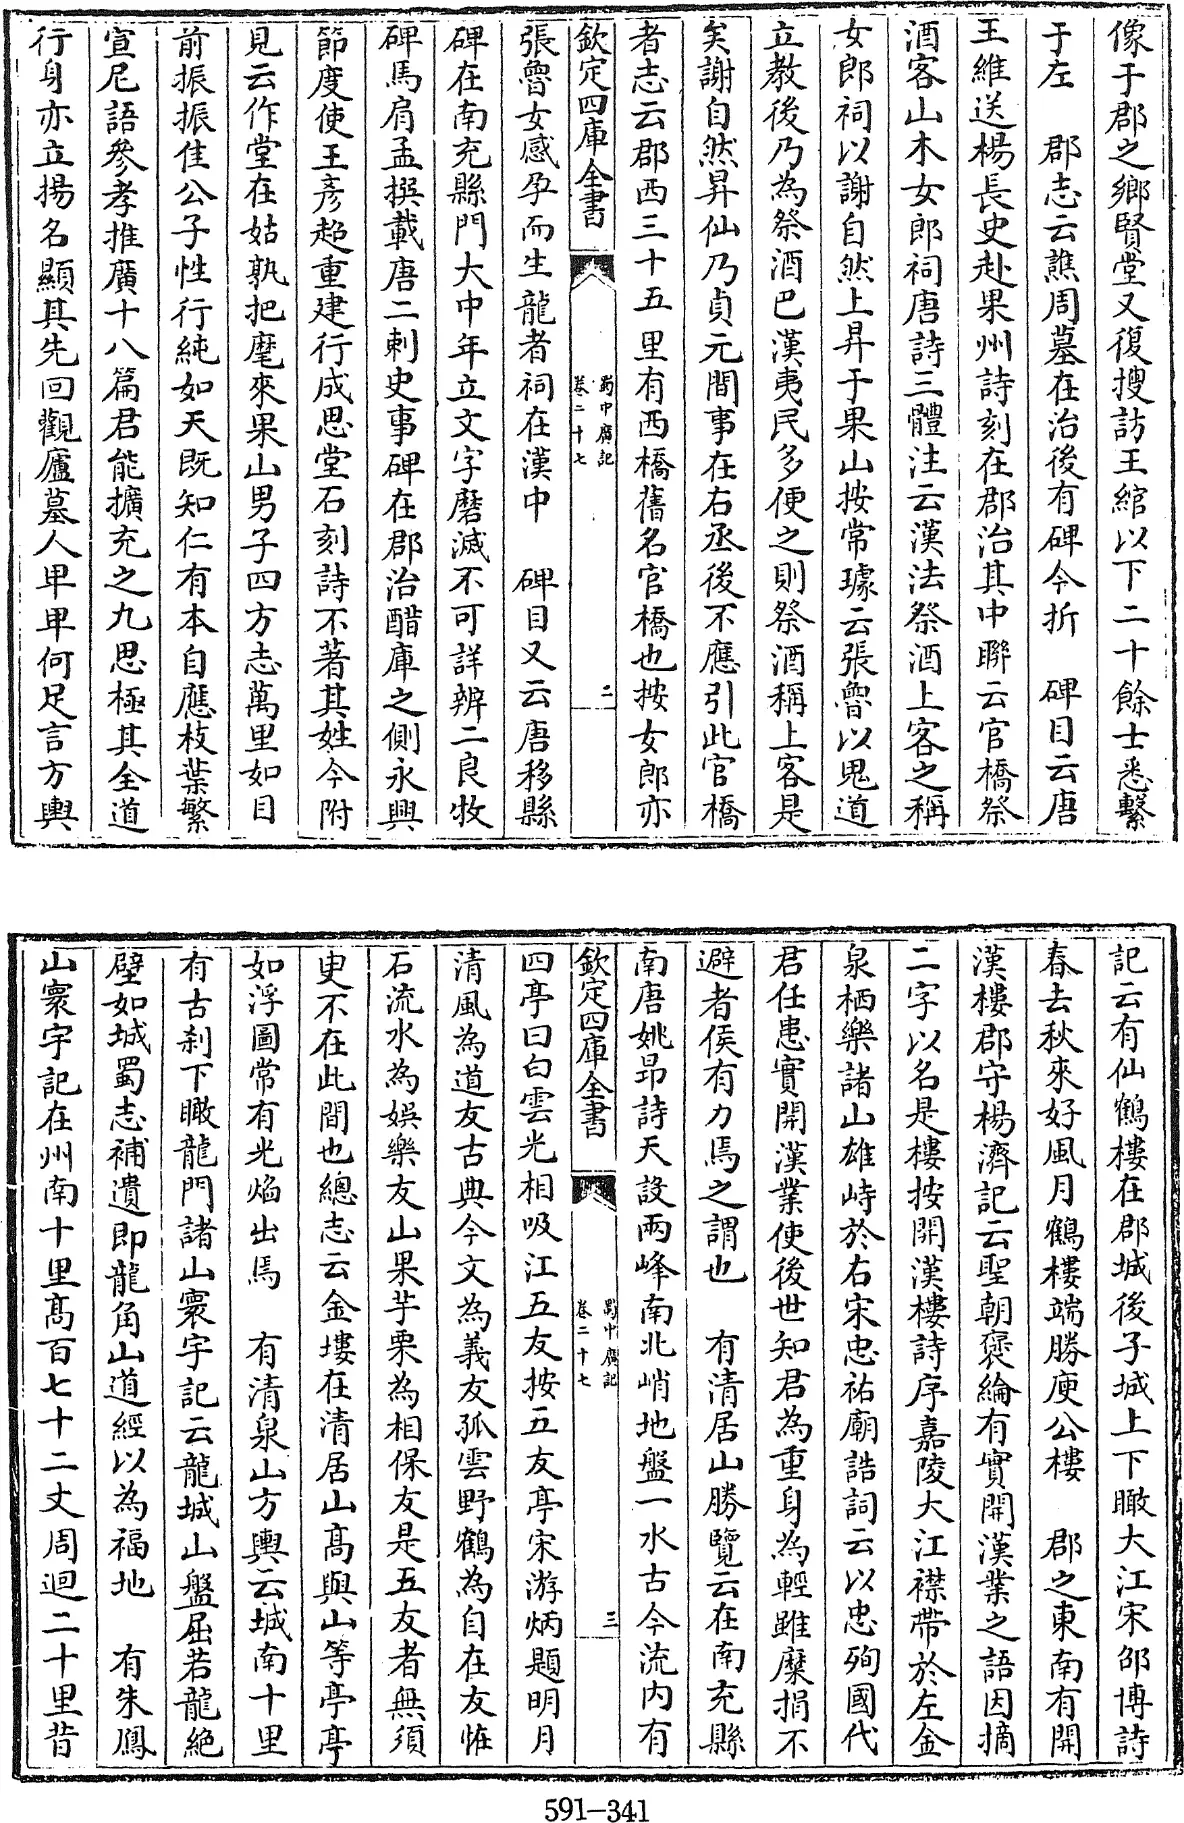 像于郡之鄉賢堂又復搜訪王綰以下二十餘士悉繫
于左　郡志云譙周墓在治後有碑今折　碑目云唐
王維送楊長史赴果州詩刻在郡治其中聯云官橋祭
酒客山木女郎祠唐詩三體注云漢法祭酒上客之稱
女郎祠以謝自然上昇于果山按常璩云張魯以鬼道
立教後乃為祭酒巴漢夷民多便之則祭酒稱上客是
矣謝自然昇仙乃貞元間事在右丞後不應引此官橋
者志云郡西三十五里有西橋舊名官橋也按女郎亦
欽定四庫全書
蜀中廣記
卷二十七
二
張魯女感孕而生龍者祠在漢中　碑目又云唐移縣
碑在南充縣門大中年立文字磨滅不可詳辨二良牧
碑馬肩孟撰載唐二刺史事碑在郡治醋庫之側永興
節度使王彥超重建行成思堂石刻詩不著其姓今附
見云作堂在姑孰把麾來果山男子四方志萬里如目
前振振佳公子性行純如天既知仁有本自應枝葉繁
宣尼語參孝推廣十八篇君能擴充之九思極其全道
行身亦立揚名顯其先回觀廬墓人卑卑何足言方輿
記云有仙鶴樓在郡城後子城上下瞰大江宋邵博詩
春去秋來好風月鶴樓端勝庾公樓　郡之東南有開
漢樓郡守楊濟記云聖朝褒綸有實開漢業之語因摘
二字以名是樓按開漢樓詩序嘉陵大江襟帶於左金
泉栖樂諸山雄峙於右宋忠祐廟誥詞云以忠殉國代
君任患實開漢業使後世知君為重身為輕雖糜捐不
避者侯有力焉之謂也　有清居山勝覽云在南充縣
南唐姚昂詩天設兩峰南北峭地盤一水古今流内有
欽定四庫全書
蜀中廣記
卷二十七
三
四亭曰白雲光相吸江五友按五友亭宋游炳題明月
清風為道友古典今文為義友孤雲野鶴為自在友怪
石流水為娛樂友山果芋栗為相保友是五友者無須
臾不在此間也總志云金塿在清居山高與山等亭亭
如浮圖常有光焰出焉　有清泉山方輿云城南十里
有古刹下瞰龍門諸山寰宇記云龍城山盤屈若龍絶
壁如城蜀志補遺即龍角山道經以為福地　有朱鳳
山寰宇記在州南十里髙百七十二丈周迴二十里昔
591-341